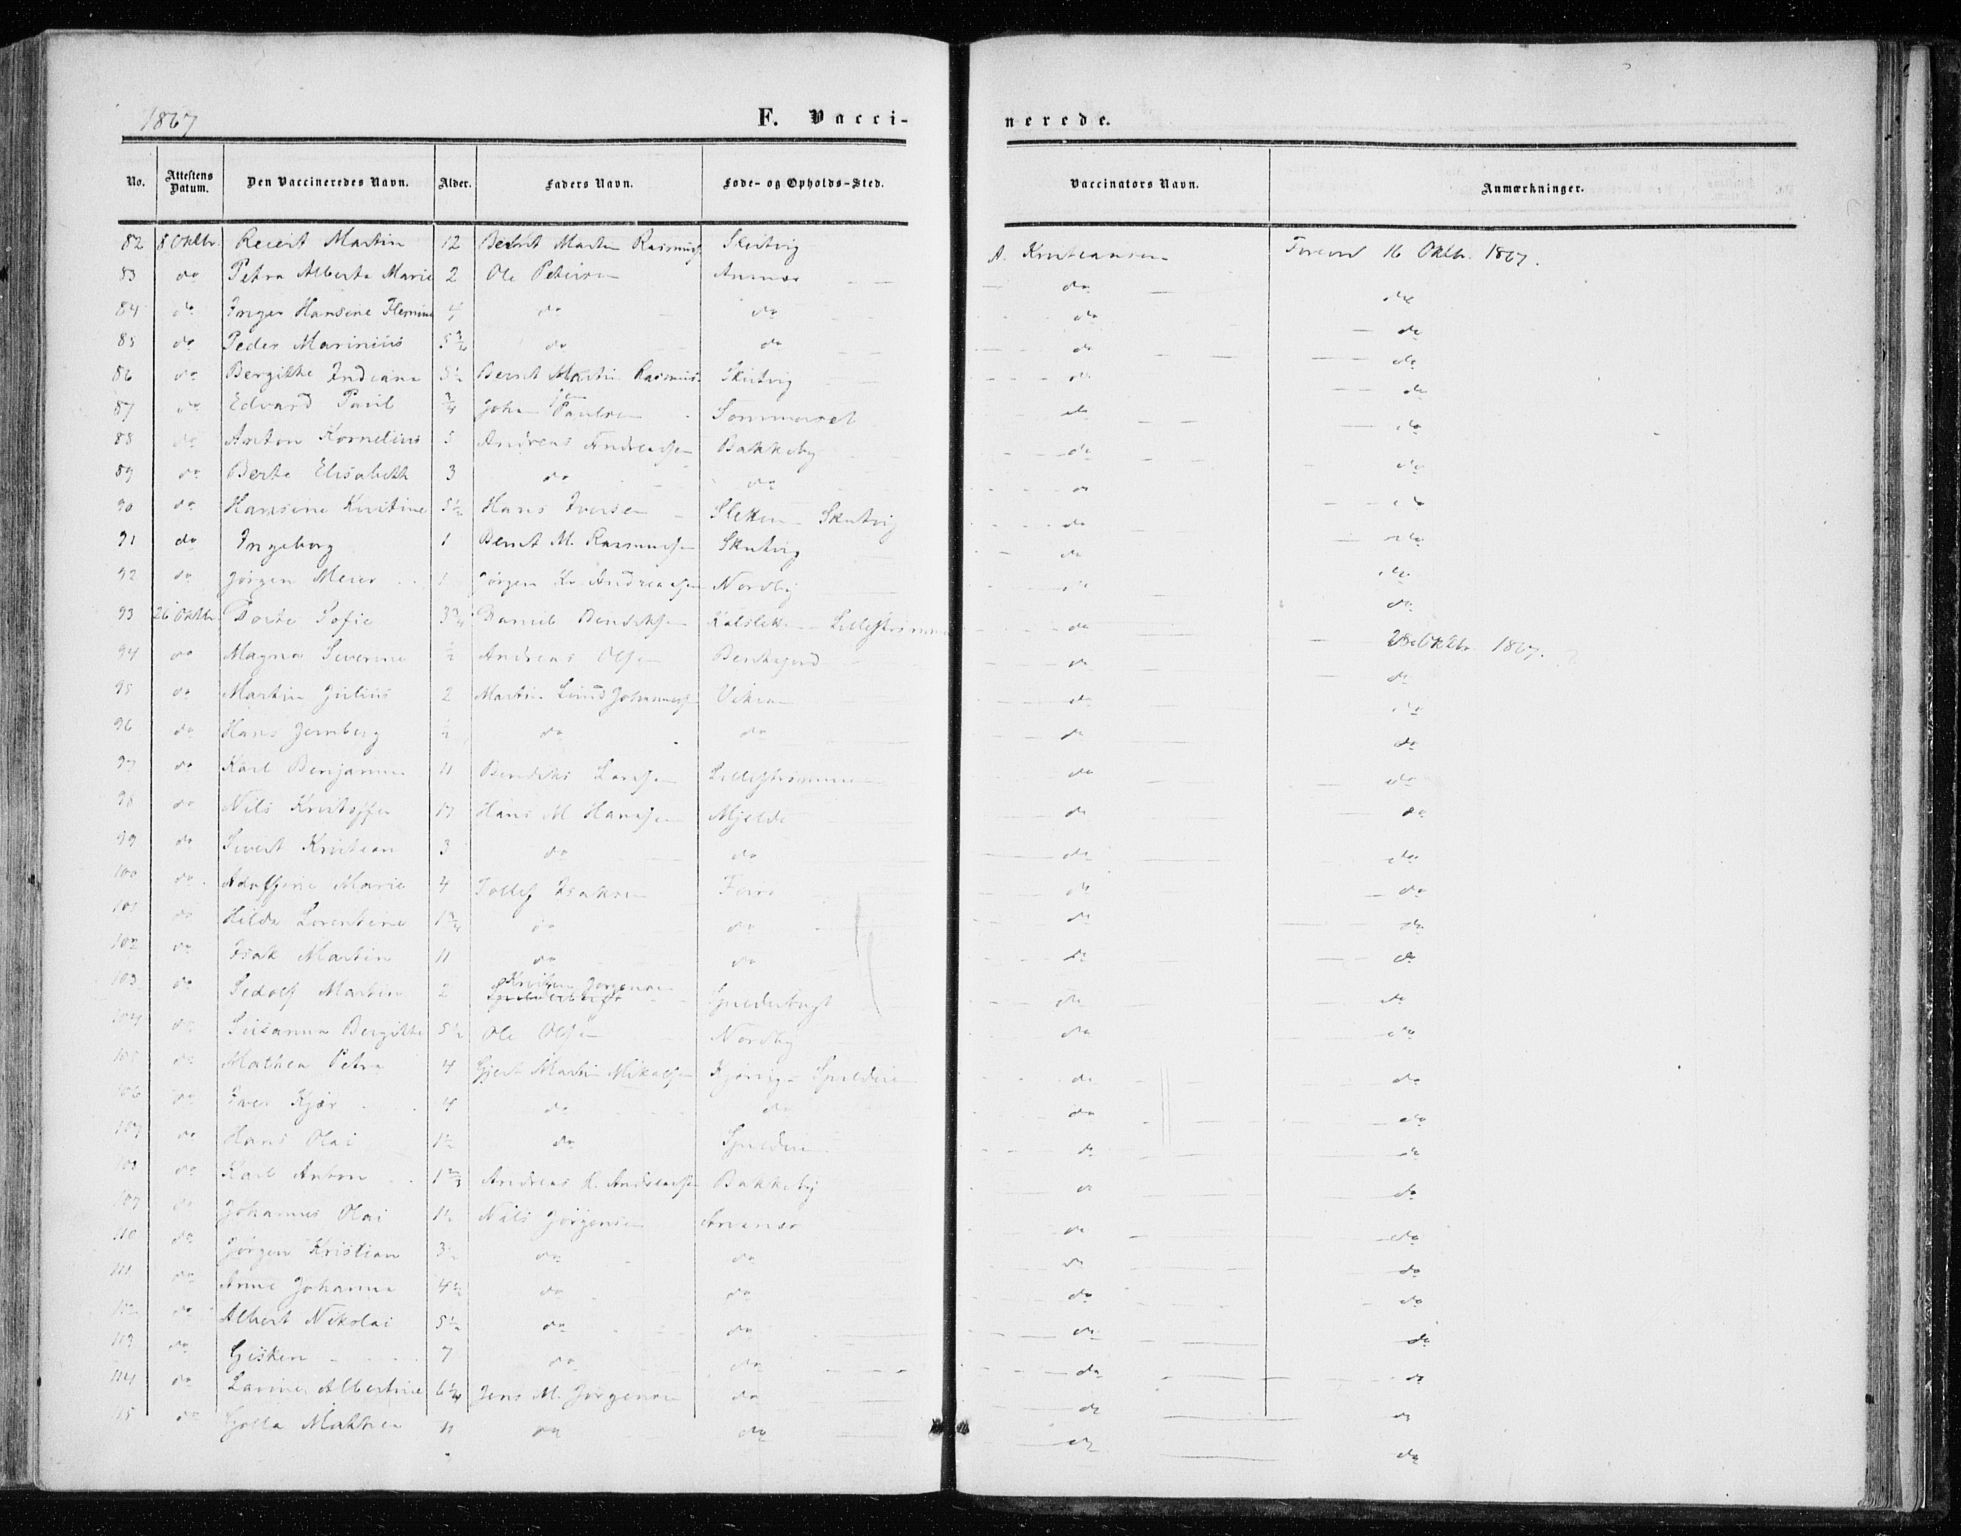 1867 F. Vacci- nerede.
No. Attestens Datum. Den Vaccineredes Navn. Alder. Faders Navn. Føde- og Opholds-Sted. Vaccinators Navn. Anmærkninger.
82 8 Oktbr. Martin 12 Martin Rasmuss Skutvig A. Kristiansen 16 Oktbr. 1867.
83 do Petra Alberta Marie 2 Ole Petersen do do
84 do Inger Hansine 4 do do do do
85 do Peder Marinius 5 3/4 do do do do
86 do Bergitte Indiana 5 1/2 Bernt Martin Rasmuss Skutvig do do
87 do Edvard Paul 3/4 Johan Paulsen Sommerset do do
88 do Anton Kornelius 5 Andreas Andreassen Bakkeby do do
89 do Berte Elisabeth 3 do do do do
90 do Hansine Kristine 5 1/2 Hans Iversen Sletten - Skutvig do do
91 do Ingeborg 1 Bernt M. Rasmussen Skutvig do do
92 do Jørgen Meier 1 Jørgen Kr. Andreassen Nordby do do
93 26 Oktbr. Dorte Sofie 3 3/4 Daniel Bendiksen Kalsletten - Lillestrømmen do Oktbr 1867.
94 do Magna Severine 1/2 Andreas Olsen do do
95 do Martin Julius 2 Martin Lund Johanness Viken do do
96 do Hans Jernberg 1/2 do do do do
97 do Karl Benjamin 11 Bendiks Larsen Lillestrømmen do do
98 do Nils Kristoffer Hans M Hansen Mjelde do do
99 do Sivert Kristian 3 do do do do
100 do Adolfine Marie 4 Tollef Isaksen do do
101 do Hilda Lorentine 1 3/4 do do do do
102 do Isak Martin 11 do do do do
103 do Sedolf Martin 2 Kristen Jørgensen Spilderbugt do do
104 do Susanna Bergitte 5 1/2 Ole Olsen Nordby do do
105 do Mathea Petra 4 Gjert Martin Mikalsen Kjørvig - Spildren do do
106 do Iver Kjær 4 do do do do
107 do Hans Olai 1 1/2 do Spildren do do
108 do Karl Anton 1 2/3 Andreas H. Andreassen Bakkeby do do
109 do Johannes Olai 1 1/2 Nils Jørgensen do do
110 do Jørgen Kristian 3 1/2 do do do do
111 do Anne Johanna 4 1/2 do do do do
112 do Albert Nikolai 5 1/2 do do do do
113 do Gisken 7 do do do do
114 do Lavine Albertine 6 3/4 Jens M. Jørgensen do do do
115 do Mathea 11 do do do do